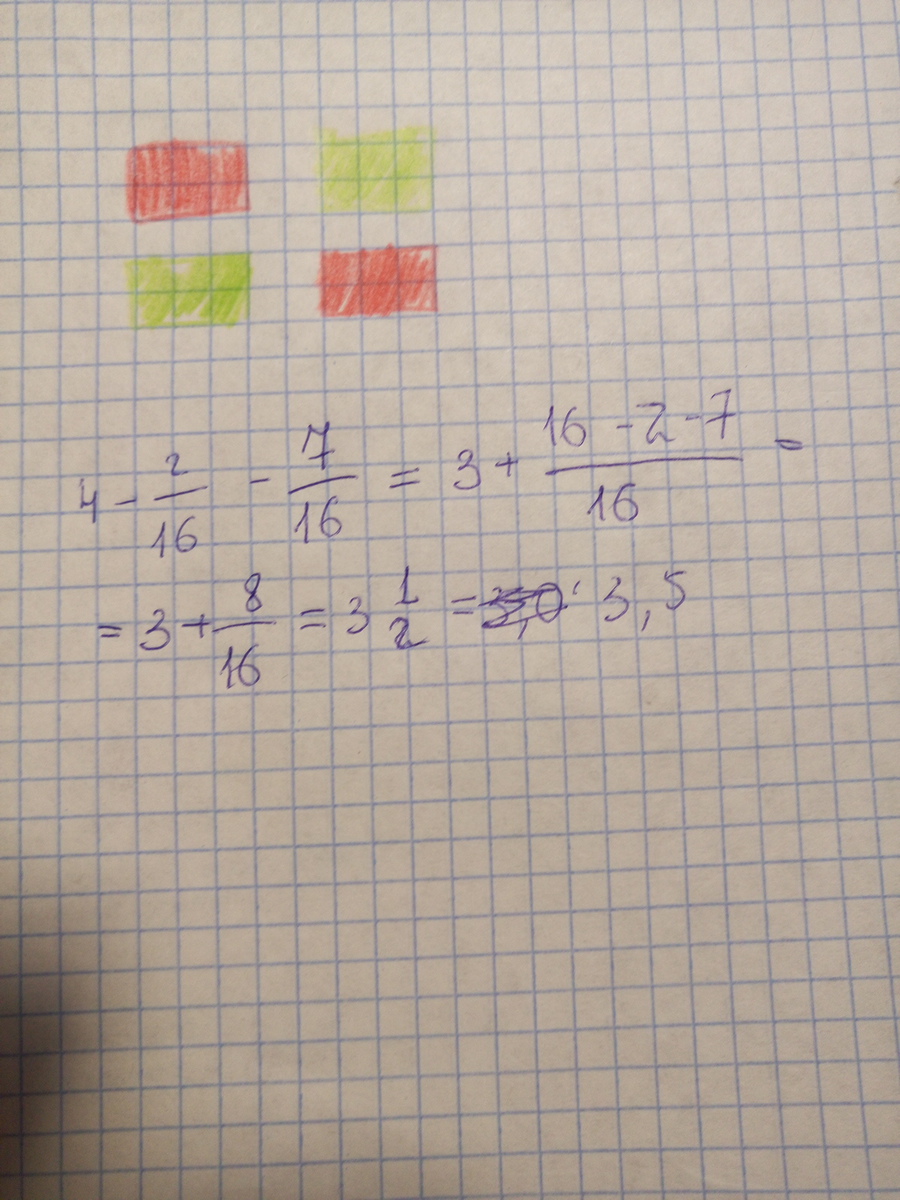 4 - 2/16 - 7/16 = 3 + (16 - 2 - 7)/16 =
= 3 + 8/16 = 3 1/2 = 3,5